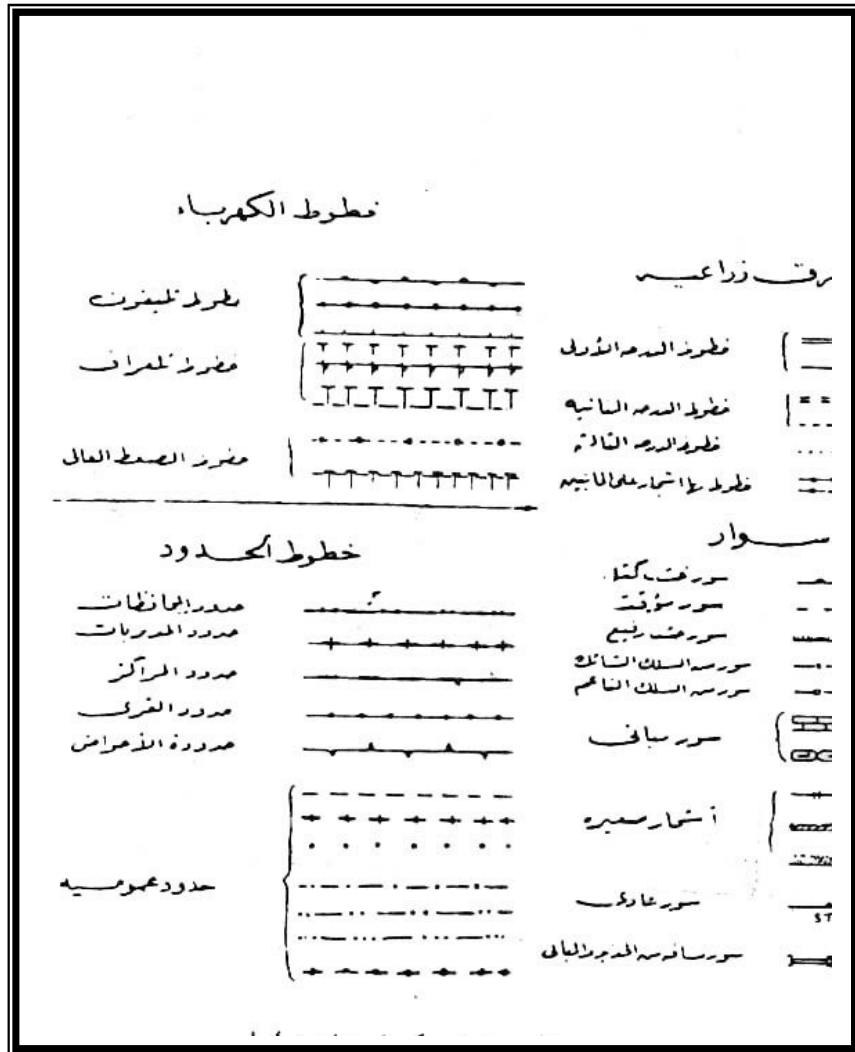 خطوط الكهرباء
خطوط تليفون
خطوط تلغراف
خطوط الضغط العالى
خطوط الحدود
حدود المحافظات
حدود المديريات
حدود المراكز
حدود القرى
حدودة الأحواض
حدود عموميه
رق زراعيه
خطوط الدرجه الأولى
خطوط الدرجه الثانيه
خطوط الدرجه الثالثه
خطوط بها اشجار على الجانبين
سوار
سور خشب
سور مؤقت
سور خشب رفيع
سور من السلك الشائك
سور من السلك الناعم
سور مبانى
أشجار صغيره
سور عادى
ST
سور من